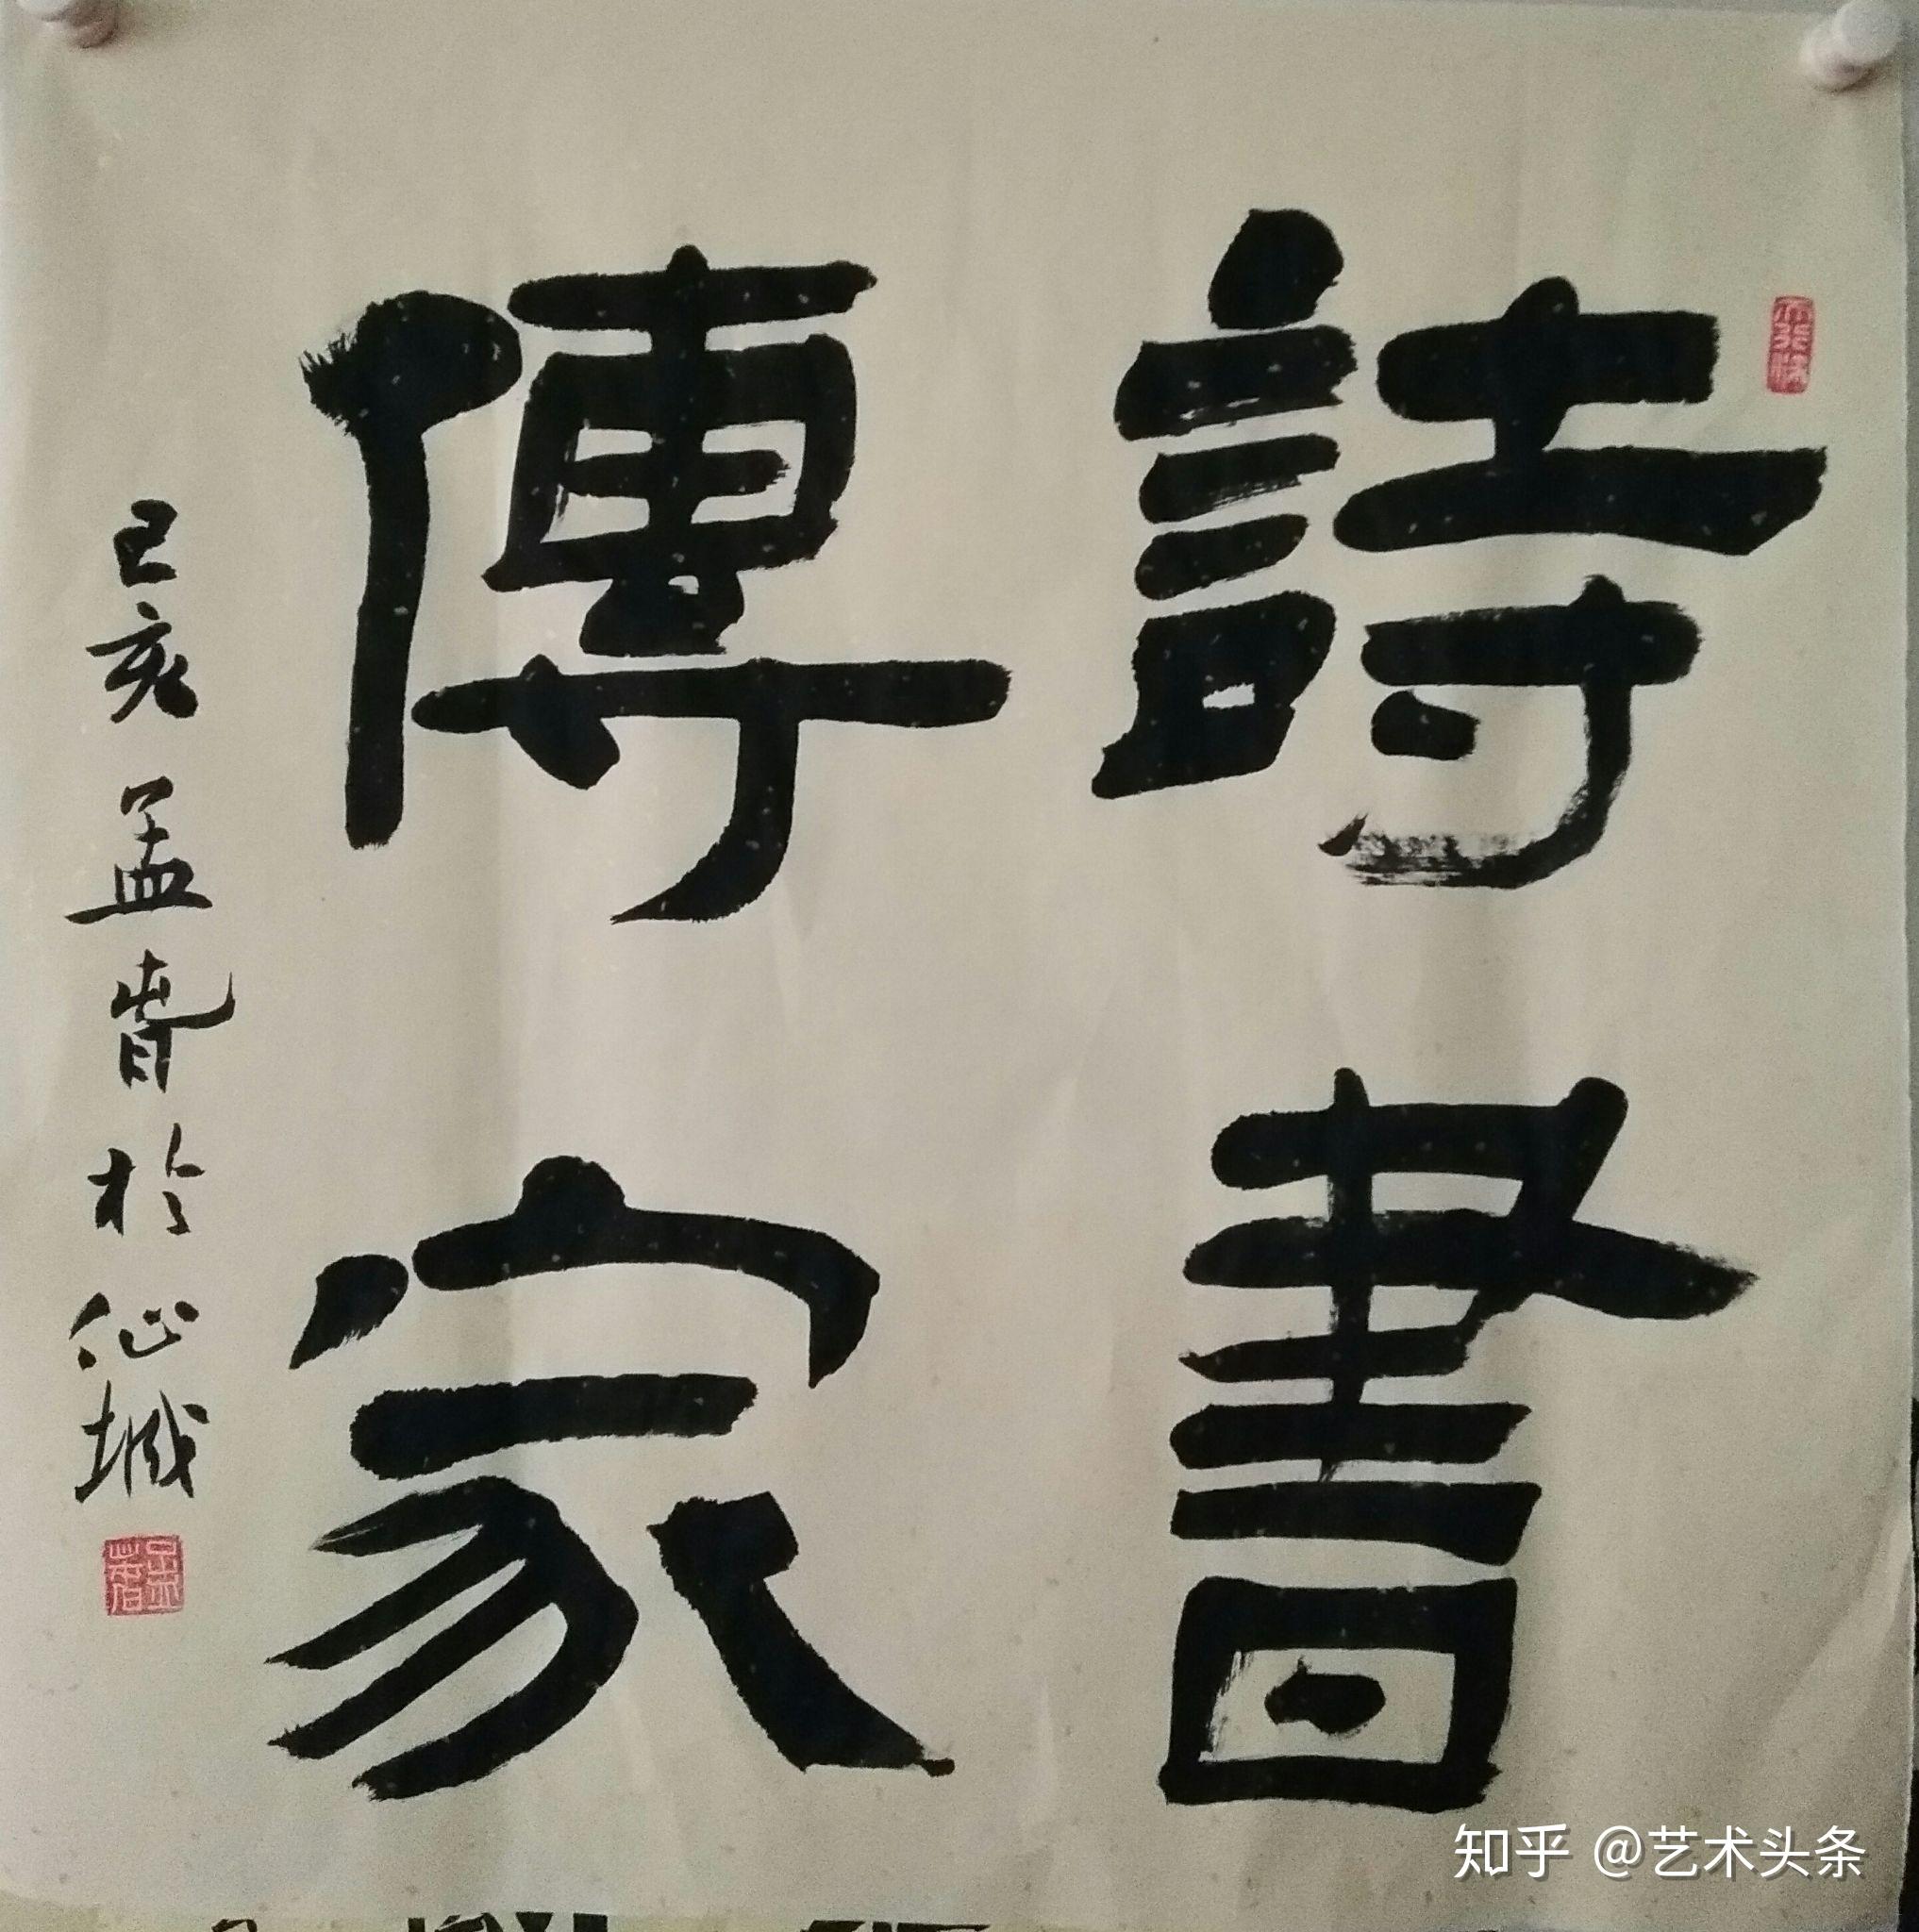 詩書
傳家
己亥孟春於仙城
知乎 @艺术头条